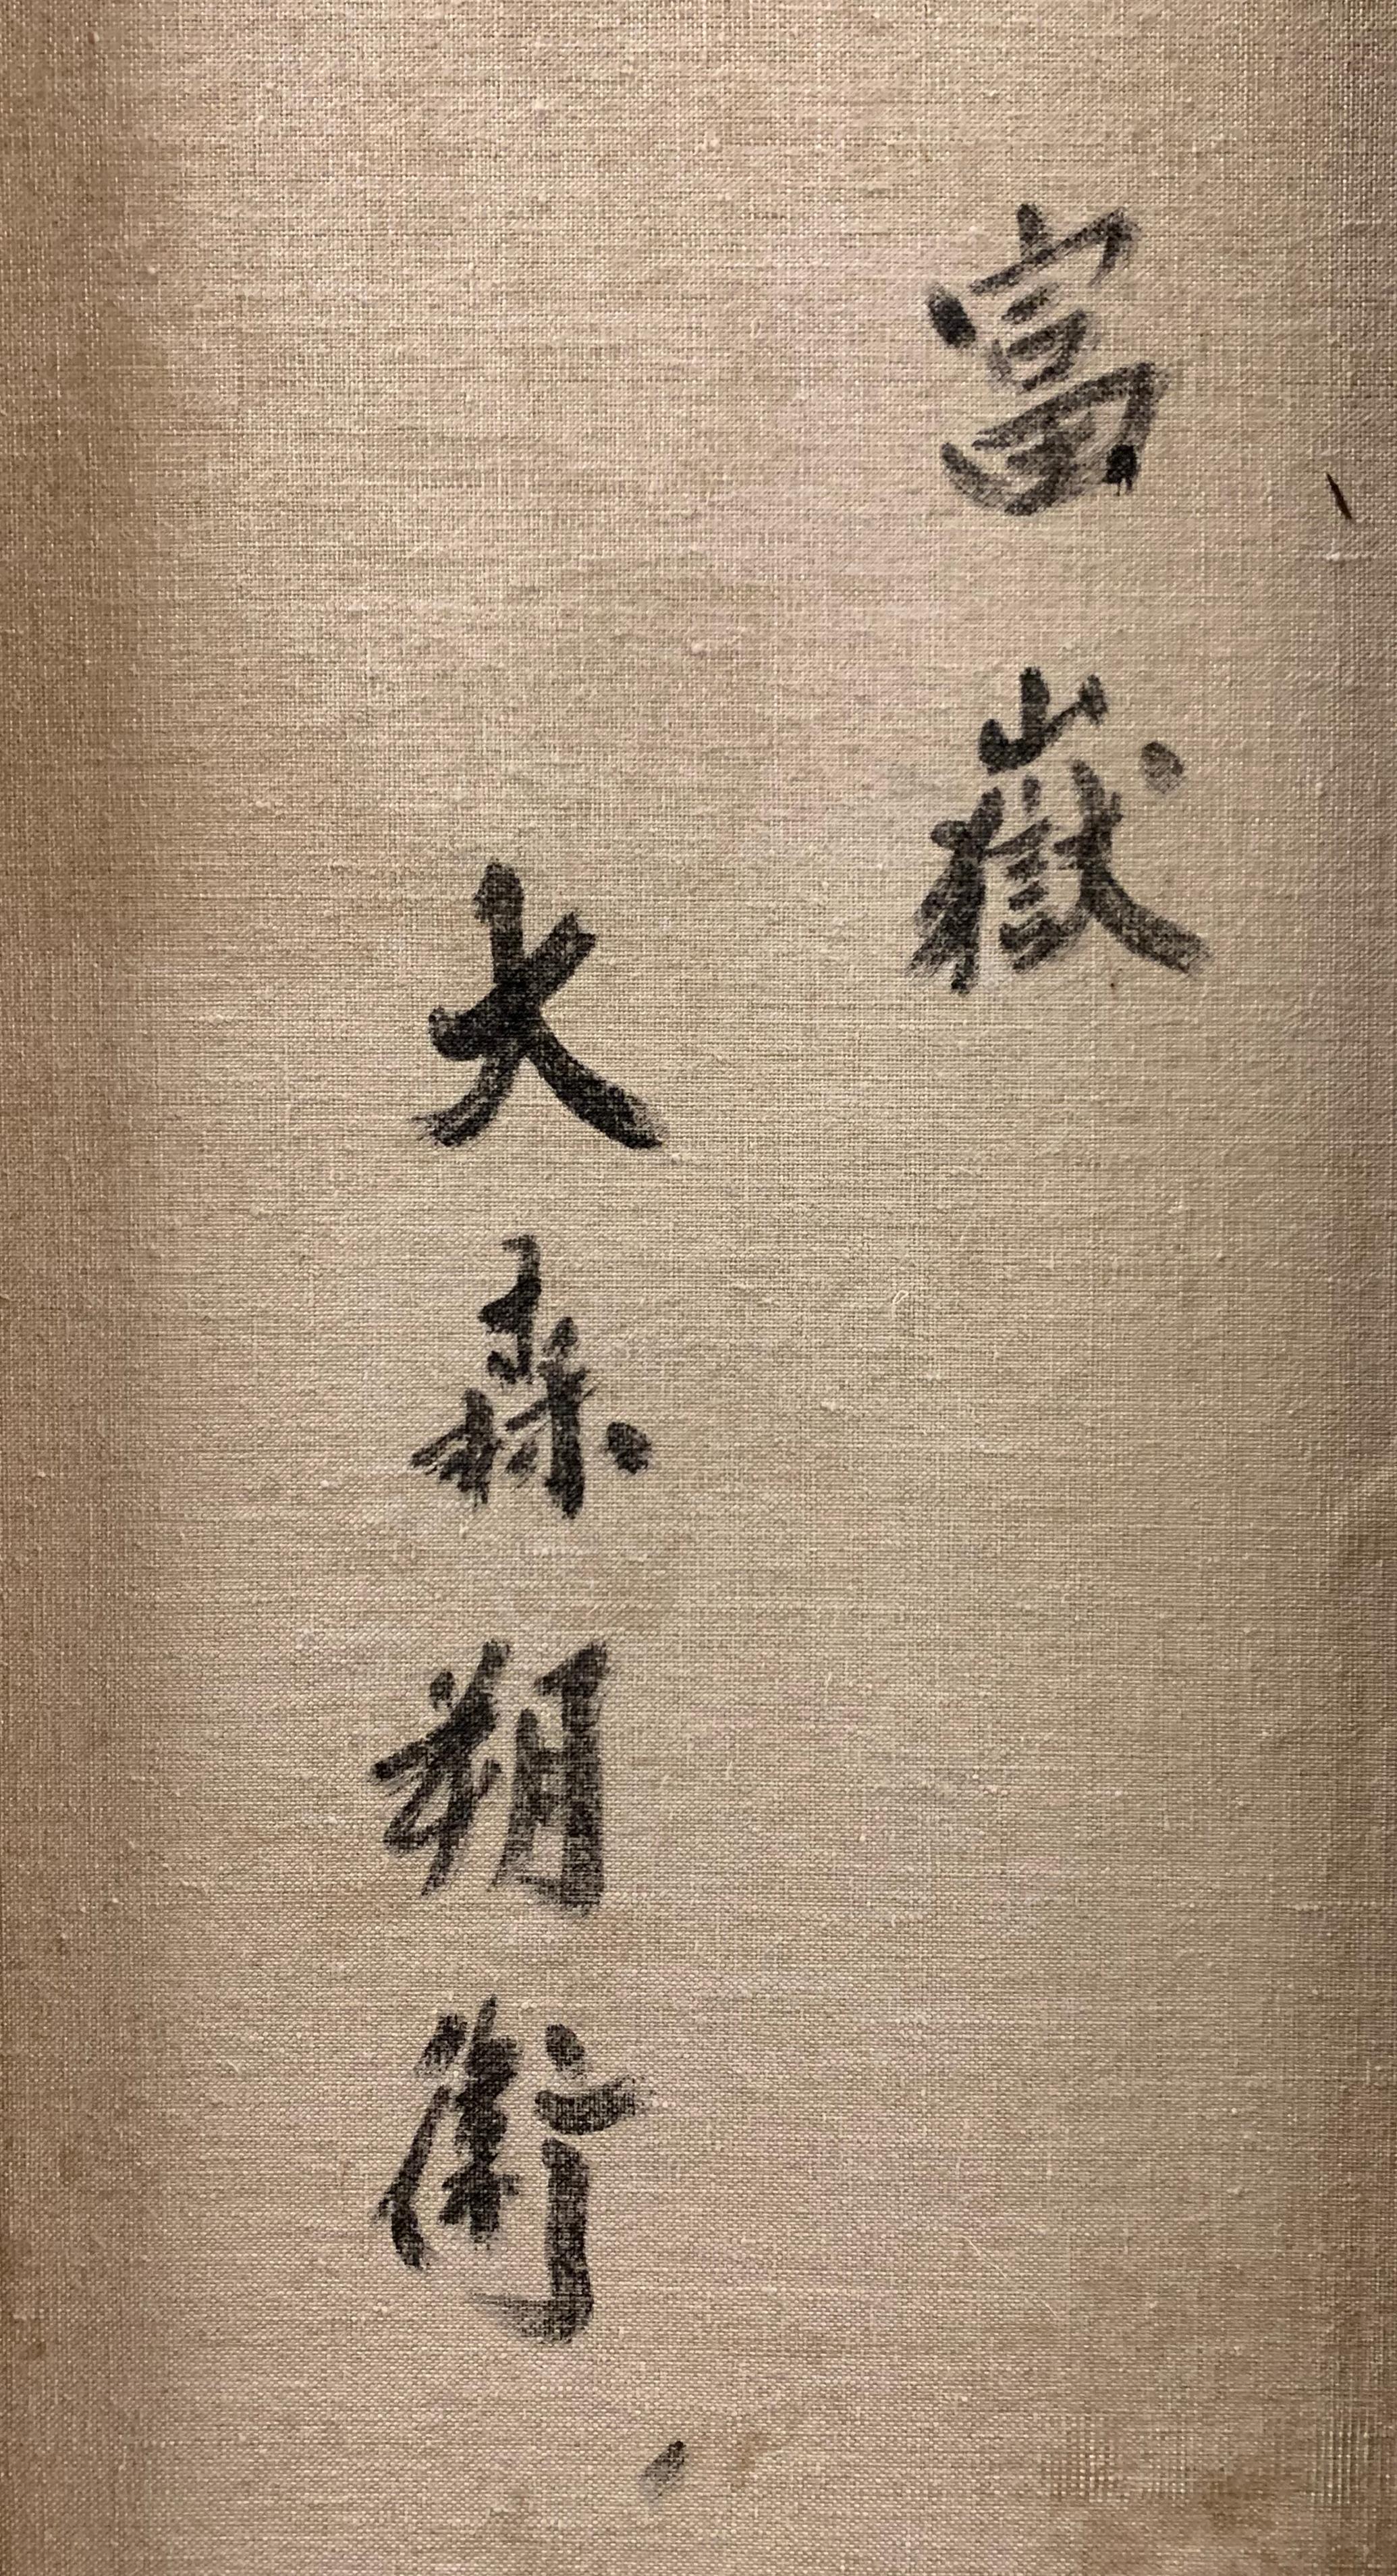 富嶽
大森朔衛